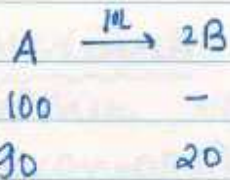 A 10L → 2B
100 –
90 20